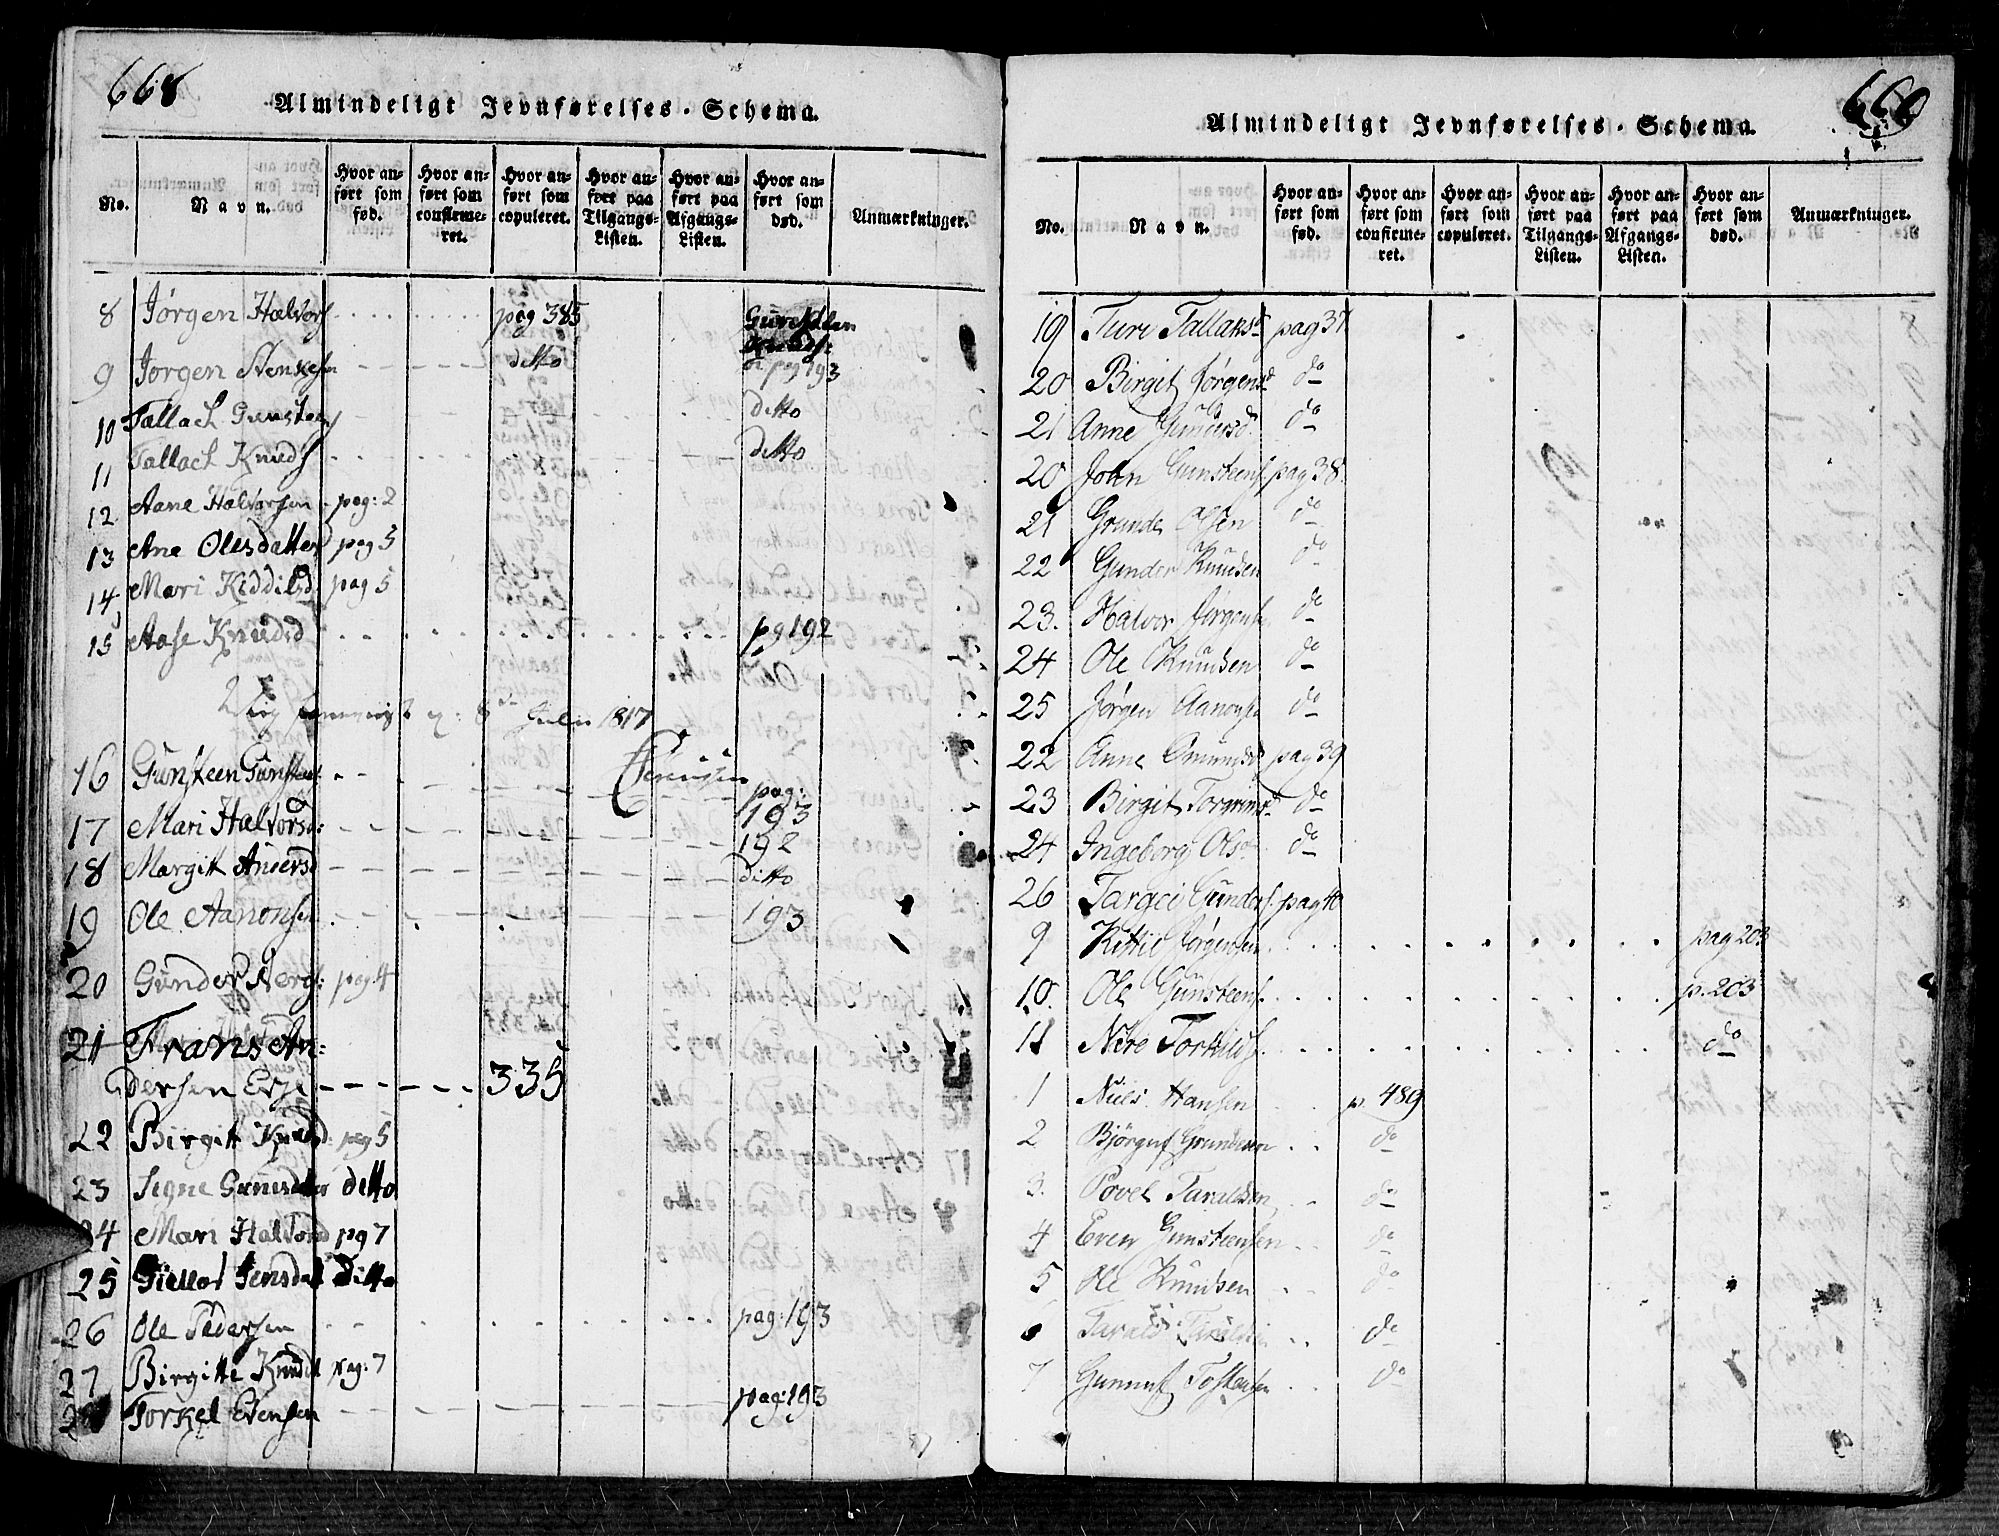 668
Almindeligt Jevnførelses-Schema.
No. Navn. Hvor anført som fød. Hvor anført som confirmeret. Hvor anført som copuleret. Hvor anført paa Tilgangs-Listen. Hvor anført paa Afgangs-Listen. Hvor anført som død. Anmærkninger.
8 Jørgen Halvors pag 385
9 Jørgen ditto pag 193
10 Tallach Gunsteens ditto
11 Tallach Knuds ditto
12 Aane Halvorsen pag: 2
13 Ane Olesdatter pag 5
14 Mari Kiddilsd pag 5
15 Aase Knudsd pg 192
8de Julii 1817
16 Gunsteen Gunsteens pag: 193
17 Mari Halvorsd: 192
18 Margitt Andersd ditto
19 Ole Aanonsen 193
20 Gunder pag: 4
21 Frans An:
dersen 335
22 Birgitt Knudsd: pag 5
23 Signe Gunnersdatter ditto
24 Mari Halvorsd pg 7
25 Jensdat Ditto
26 Ole Pedersen pag: 193
27 Birgitte Knudsd pag: 7
28 Torkel Evensen pag: 193
669
Almindeligt Jevnførelses-Schema.
No. Navn. Hvor anført som fød. Hvor anført som confirmeret. Hvor anført som copuleret. Hvor anført paa Tilgangs-Listen. Hvor anført paa Afgangs-Listen. Hvor anført som død. Anmærkninger.
19 Turi Tallaksd pag 37
20 Birgit Jørgensd do
21 Anne Gundersd. do
20 John Gunsteens. pag 38.
21 Grunde Olsen do
22 Gunder Knudsen do
23. Halvor Jørgens do
24 Ole Knudsen do
25 Jørgen Aanons do
22 Anne Omundsd pag 39
23 Birgit Torgrimsd do
24 Ingeborg Olsd do
26 Targei Gunders. pag 40
9 Kittil Jørgensen pag 203
10. Ole Gunsteens. p. 203
11 Nere Torkilds. do
1 Niels Hansen p. 489
2 Bjørguf Grundesen do
3. Povel Taraldsen do
4 Even Gunsteensen do
5 Ole Knudsen do
6 Tarald Taraldsen do
7 Gunnuf Tostensen do